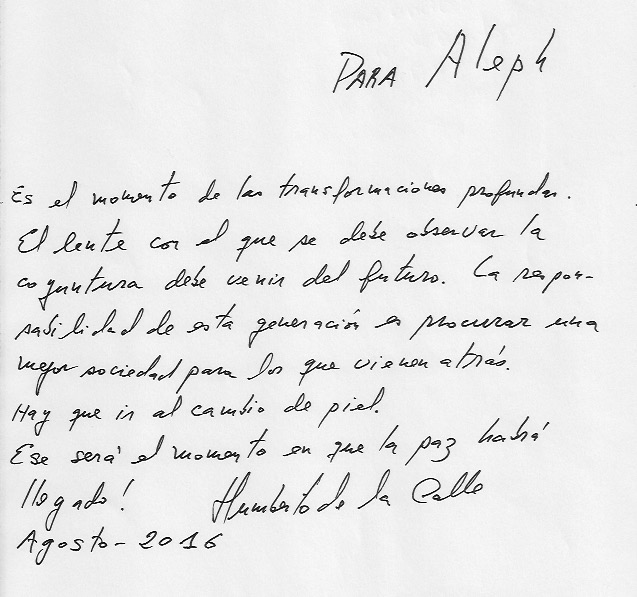 PARA Aleph
Es el momento de las transformaciones profundas.
El lente con el que se debe observar la
coyuntura debe venir del futuro. La respon-
sabilidad de esta generación es procurar una
mejor sociedad para los que vienen atrás.
Hay que ir al cambio de piel.
Ese será el momento en que la paz habrá
llegado! Humberto de la Calle
Agosto - 2016